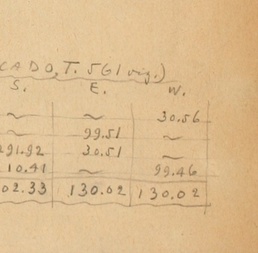 CADO, T. 561 vig.)
S. E. W.
~ ~ 30.56
~ 99.51 ~
291.92 30.51 ~
10.41 ~ 99.46
02.33 130.02 130.02